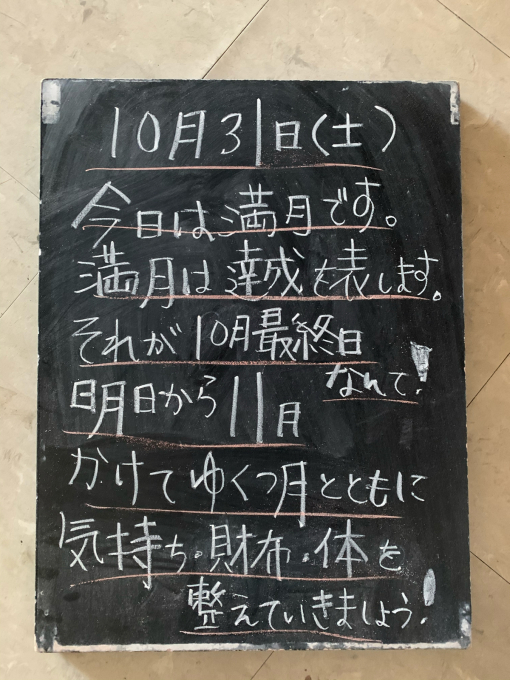 10月31日(土)
今日は満月です。
満月は達成を表します。
それが10月最終日
なんて!
明日から11月
かけてゆくつ月とともに
気持ち・財布・体を
整えていきましょう!